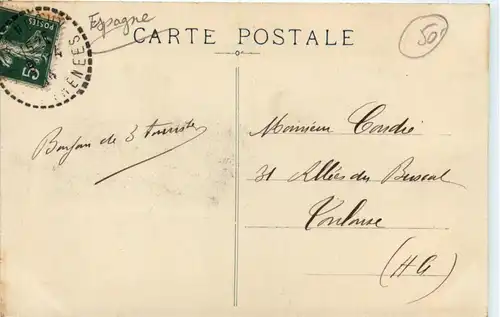 Espagne
CARTE POSTALE
50
POSTES
5
ENEES
Bonjour de 3 touristes
Monsieur
31 Allées du Busca
Toulouse
(HG)